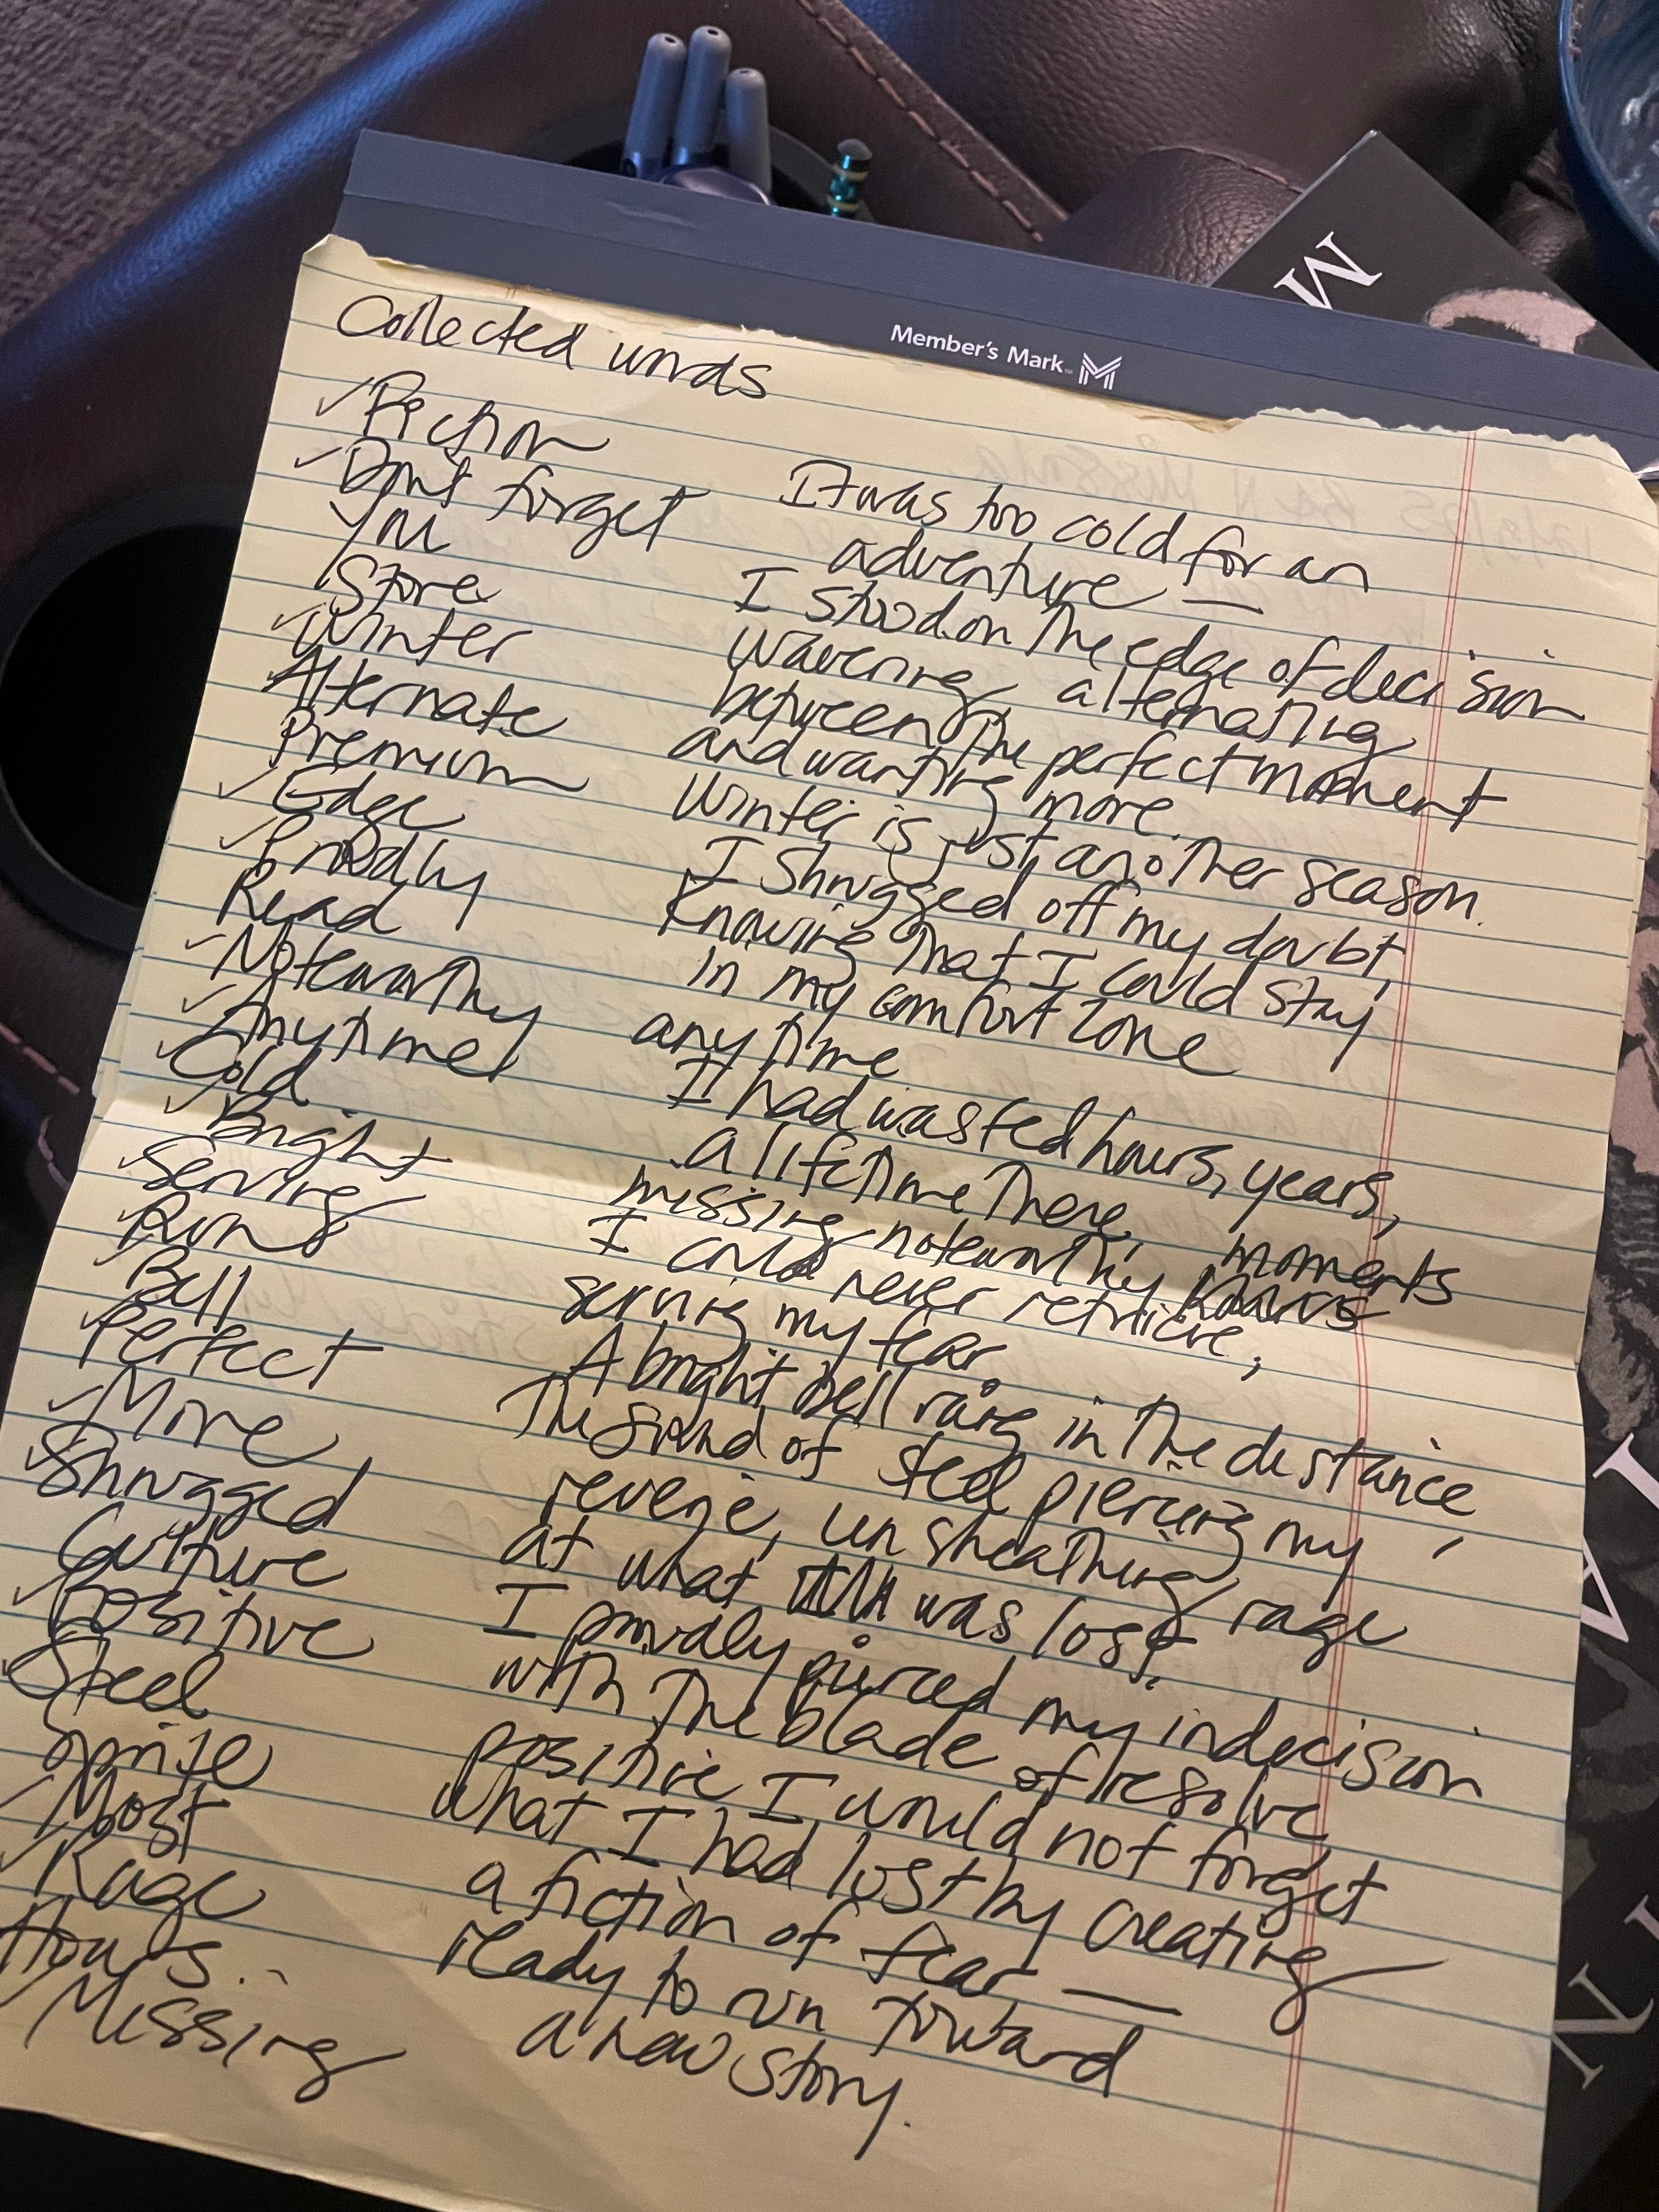 Member's Mark
M
Collected words
✓ Fiction
✓ Don't forget
✓ You
Store
✓ Winter
Alternate
Premium
✓ Edge
✓ Proudly
Read
✓ Noteworthy
✓ Anytime
✓ Cold
✓ Bright
✓ Serving
✓ Run
Bell
✓ Perfect
✓ More
✓ Shrugged
Culture
✓ Positive
Steel
Sprite
✓ Most
✓ Rage
Hours
✓ Missing
It was too cold for an
adventure —
I stood on the edge of decision
wavering, alternating
between the perfect moment
and wanting more.
Winter is just another season.
I shrugged off my doubt,
Knowing that I could stay
in my comfort zone
anytime
I had wasted hours, years,
a lifetime there,
missing noteworthy moments
I could never retrieve,
serving my fear
A bright bell rang in the distance,
The sound of steel piercing my
reverie, unsheathing rage
at what was lost.
I proudly pierced my indecision
with the blade of resolve,
positive I would not forget
what I had lost by creating
a fiction of fear —
ready to run toward
a new story.